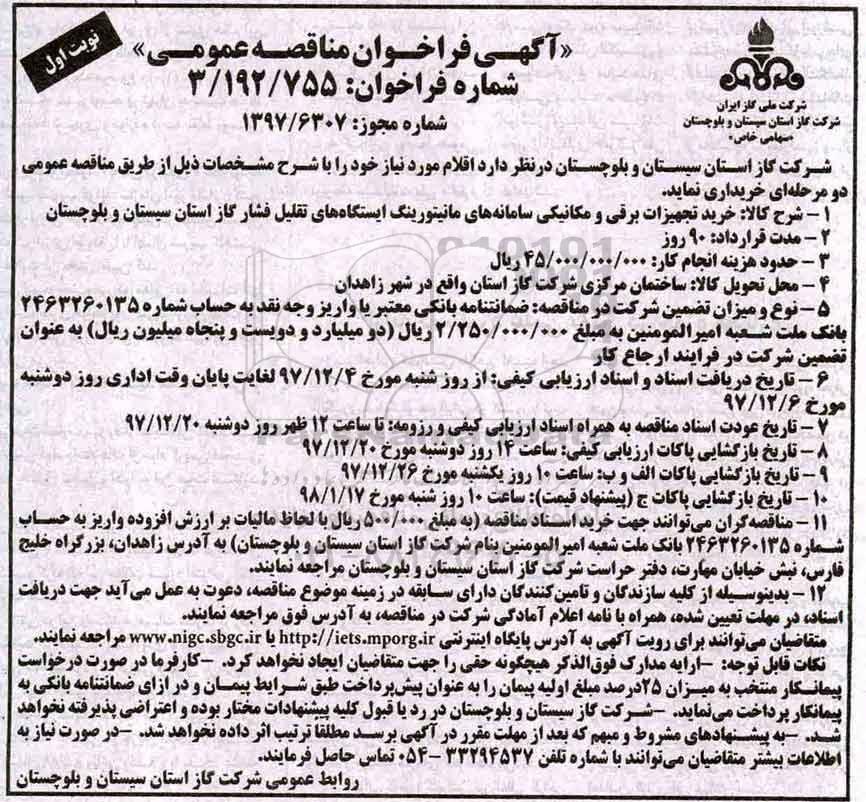 نوبت اول
«آگهی فراخوان مناقصه عمومی»
شماره فراخوان: ۳/۱۹۲/۷۵۵
شماره مجوز: ۱۳۹۷/۶۳۰۷
شرکت ملی گاز ایران
شرکت گاز استان سیستان و بلوچستان
«سهامی خاص»
شرکت گاز استان سیستان و بلوچستان درنظر دارد اقلام مورد نیاز خود را با شرح مشخصات ذیل از طریق مناقصه عمومی
دو مرحله‌ای خریداری نماید.
۱ – شرح کالا: خرید تجهیزات برقی و مکانیکی سامانه‌های مانیتورینگ ایستگاه‌های تقلیل فشار گاز استان سیستان و بلوچستان
۲ – مدت قرارداد: ۹۰ روز
۳ – حدود هزینه انجام کار: ۴۵/۰۰۰/۰۰۰/۰۰۰ ریال
۴ – محل تحویل کالا: ساختمان مرکزی شرکت گاز استان واقع در شهر زاهدان
۵ – نوع و میزان تضمین شرکت در مناقصه: ضمانتنامه بانکی معتبر یا واریز وجه نقد به حساب شماره ۲۴۶۳۲۶۰۱۳۵
بانک ملت شعبه امیرالمومنین به مبلغ ۲/۲۵۰/۰۰۰/۰۰۰ ریال (دو میلیارد و دویست و پنجاه میلیون ریال) به عنوان
تضمین شرکت در فرایند ارجاع کار
۶ – تاریخ دریافت اسناد و اسناد ارزیابی کیفی: از روز شنبه مورخ ۹۷/۱۲/۴ لغایت پایان وقت اداری روز دوشنبه
مورخ ۹۷/۱۲/۶
۷ – تاریخ عودت اسناد مناقصه به همراه اسناد ارزیابی کیفی و رزومه: تا ساعت ۱۲ ظهر روز دوشنبه ۹۷/۱۲/۲۰
۸ – تاریخ بازگشایی پاکات ارزیابی کیفی: ساعت ۱۴ روز دوشنبه مورخ ۹۷/۱۲/۲۰
۹ – تاریخ بازگشایی پاکات الف و ب: ساعت ۱۰ روز یکشنبه مورخ ۹۷/۱۲/۲۶
۱۰ – تاریخ بازگشایی پاکات ج (پیشنهاد قیمت): ساعت ۱۰ روز شنبه مورخ ۹۸/۱/۱۷
۱۱ – مناقصه‌گران می‌توانند جهت خرید اسناد مناقصه (به مبلغ ۵۰۰/۰۰۰ ریال با لحاظ مالیات بر ارزش افزوده واریز به حساب
شماره ۲۴۶۳۲۶۰۱۳۵ بانک ملت شعبه امیرالمومنین بنام شرکت گاز استان سیستان و بلوچستان) به آدرس زاهدان، بزرگراه خلیج
فارس، نبش خیابان مهارت، دفتر حراست شرکت گاز استان سیستان و بلوچستان مراجعه نمایند.
۱۲ – بدینوسیله از کلیه سازندگان و تامین‌کنندگان دارای سابقه در زمینه موضوع مناقصه، دعوت به عمل می‌آید جهت دریافت
اسناد، در مهلت تعیین شده، همراه با نامه اعلام آمادگی شرکت در مناقصه، به آدرس فوق مراجعه نمایند.
متقاضیان می‌توانند برای رویت آگهی به آدرس پایگاه اینترنتی http://iets.mporg.ir یا www.nigc.sbgc.ir مراجعه نمایند.
نکات قابل توجه: –ارایه مدارک فوق‌الذکر هیچگونه حقی را جهت متقاضیان ایجاد نخواهد کرد. –کارفرما در صورت درخواست
پیمانکار منتخب به میزان ۲۵درصد مبلغ اولیه پیمان را به عنوان پیش‌پرداخت طبق شرایط پیمان و در ازای ضمانتنامه بانکی به
پیمانکار پرداخت می‌نماید. –شرکت گاز سیستان و بلوچستان در رد یا قبول کلیه پیشنهادات مختار بوده و اعتراضی پذیرفته نخواهد
شد. –به پیشنهادهای مشروط و مبهم که بعد از مهلت مقرر در آگهی برسد مطلقا ترتیب اثر داده نخواهد شد. –در صورت نیاز به
اطلاعات بیشتر متقاضیان می‌توانند با شماره تلفن ۳۳۲۹۴۵۳۷ –۰۵۴ تماس حاصل فرمایند.
روابط عمومی شرکت گاز استان سیستان و بلوچستان